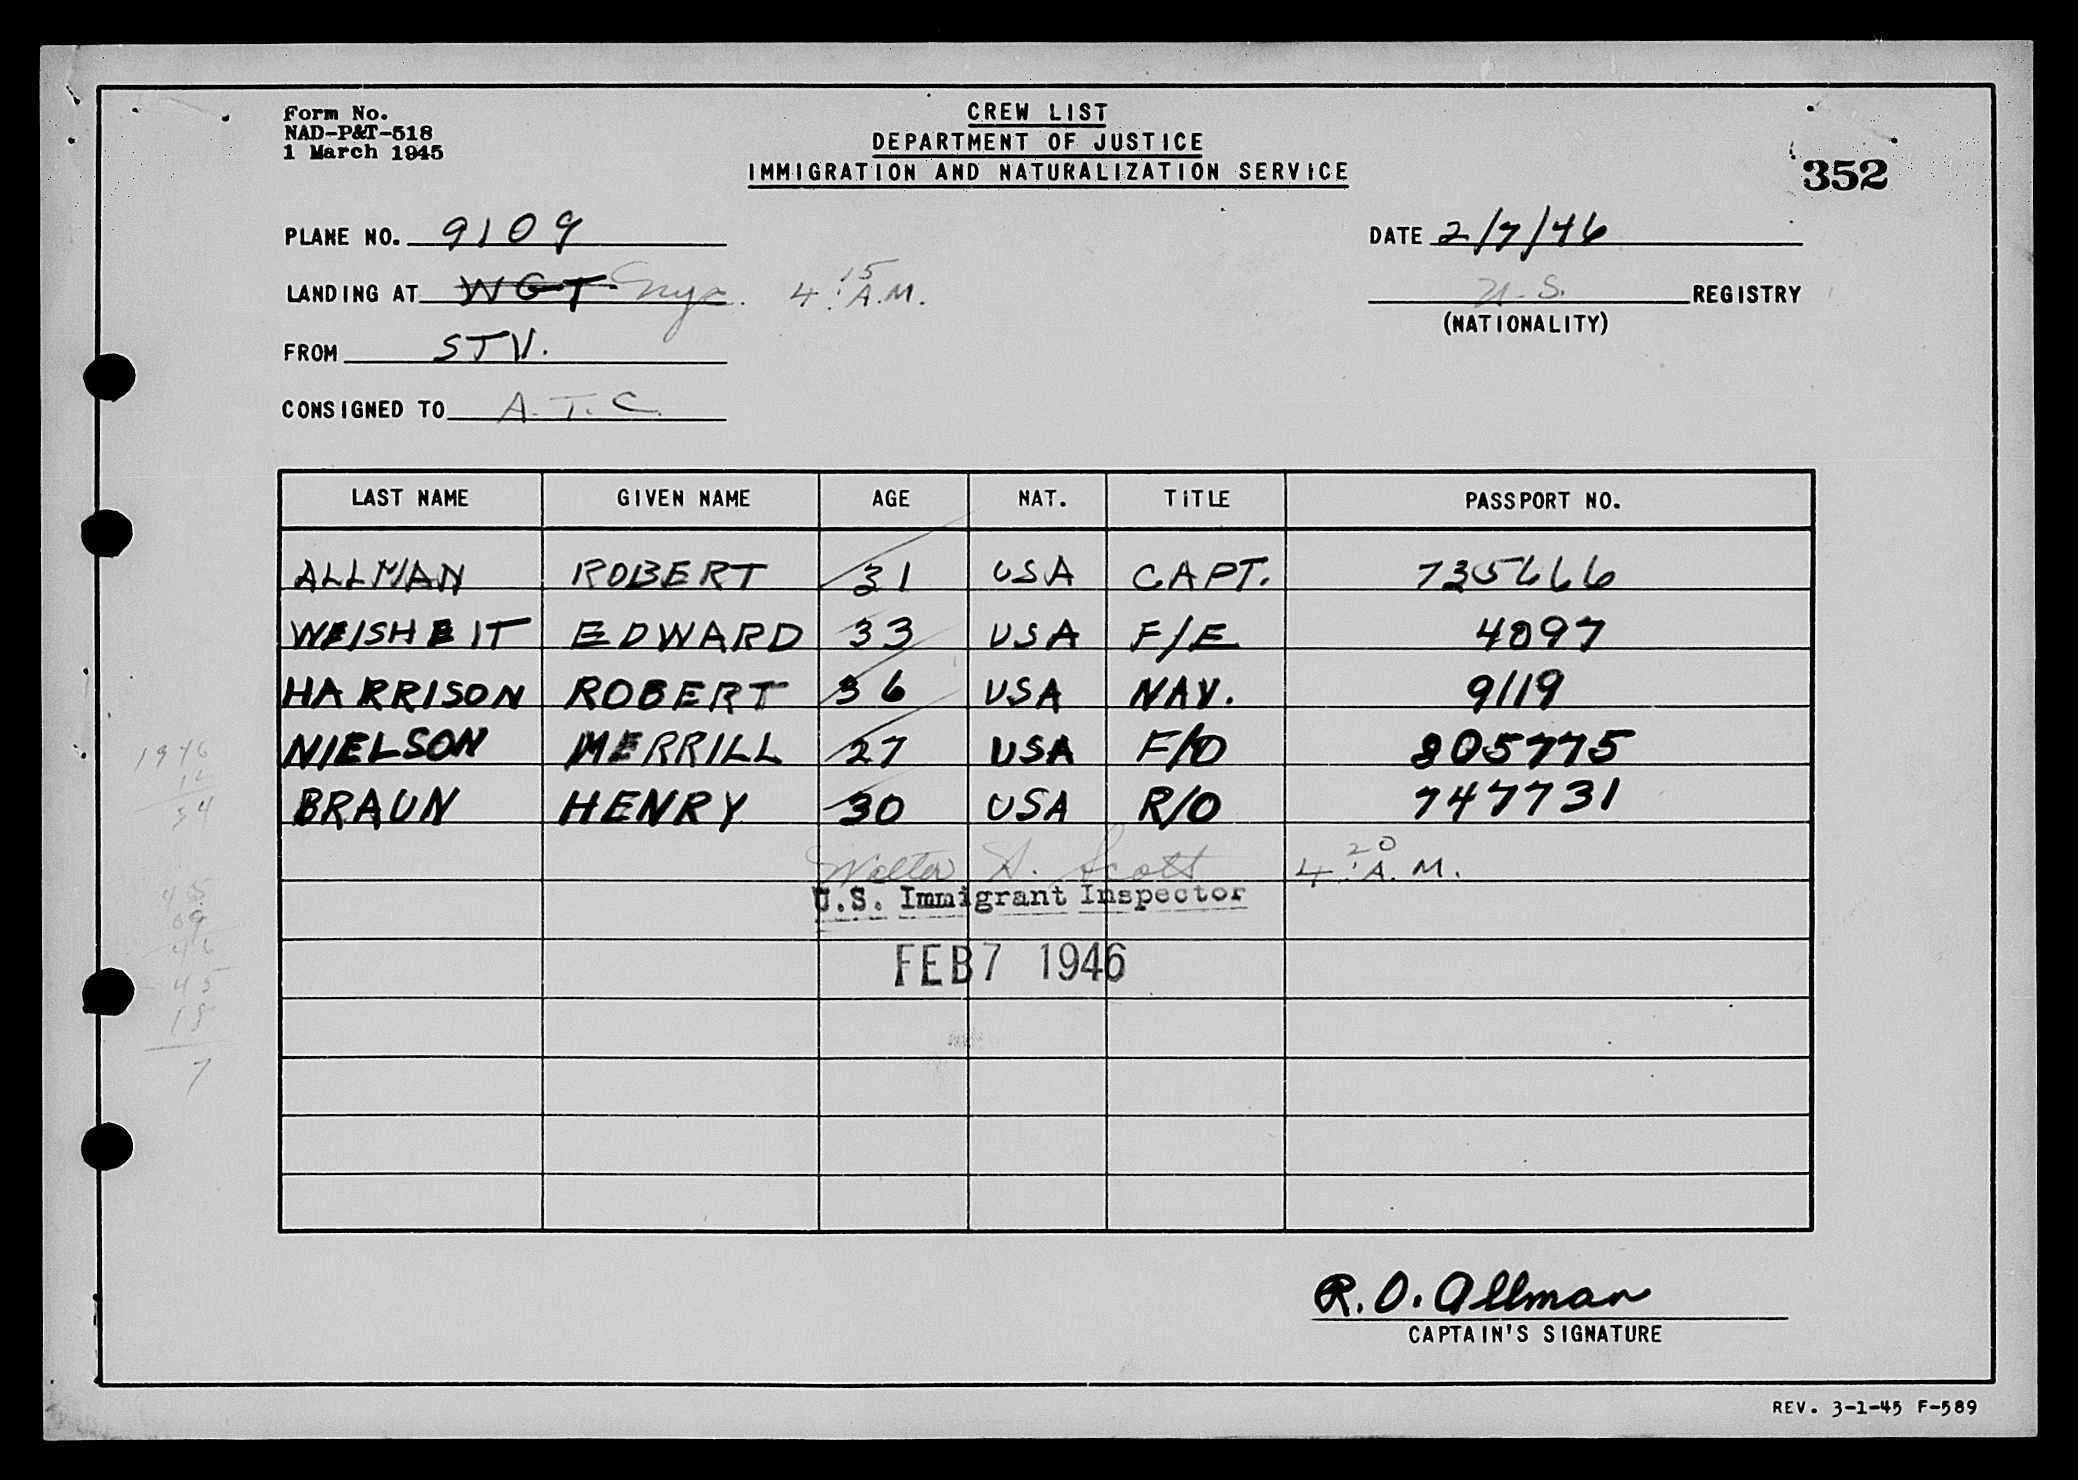 Form No.
NAD-P&T-518
1 March 1945
CREW LIST
DEPARTMENT OF JUSTICE
IMMIGRATION AND NATURALIZATION SERVICE
352
PLANE NO. 9109
DATE 2/7/46
LANDING AT WGT nyc. 4:15 A.M.
U.S. REGISTRY
(NATIONALITY)
FROM STV.
CONSIGNED TO A.T.C.
LAST NAME GIVEN NAME AGE NAT. TITLE PASSPORT NO.
ALLMAN ROBERT 31 USA CAPT. 735666
WEISHEIT EDWARD 33 USA F/E 4097
HARRISON ROBERT 36 USA NAV. 9119
NIELSON MERRILL 27 USA F/O 805775
BRAUN HENRY 30 USA R/O 747731
Walter A. Scott 4:20 A.M.
U.S. Immigrant Inspector
FEB 7 1946
1946
12
34
45
09
46
45
18
7
R. O. Allman
CAPTAIN'S SIGNATURE
REV. 3-1-45 F-589